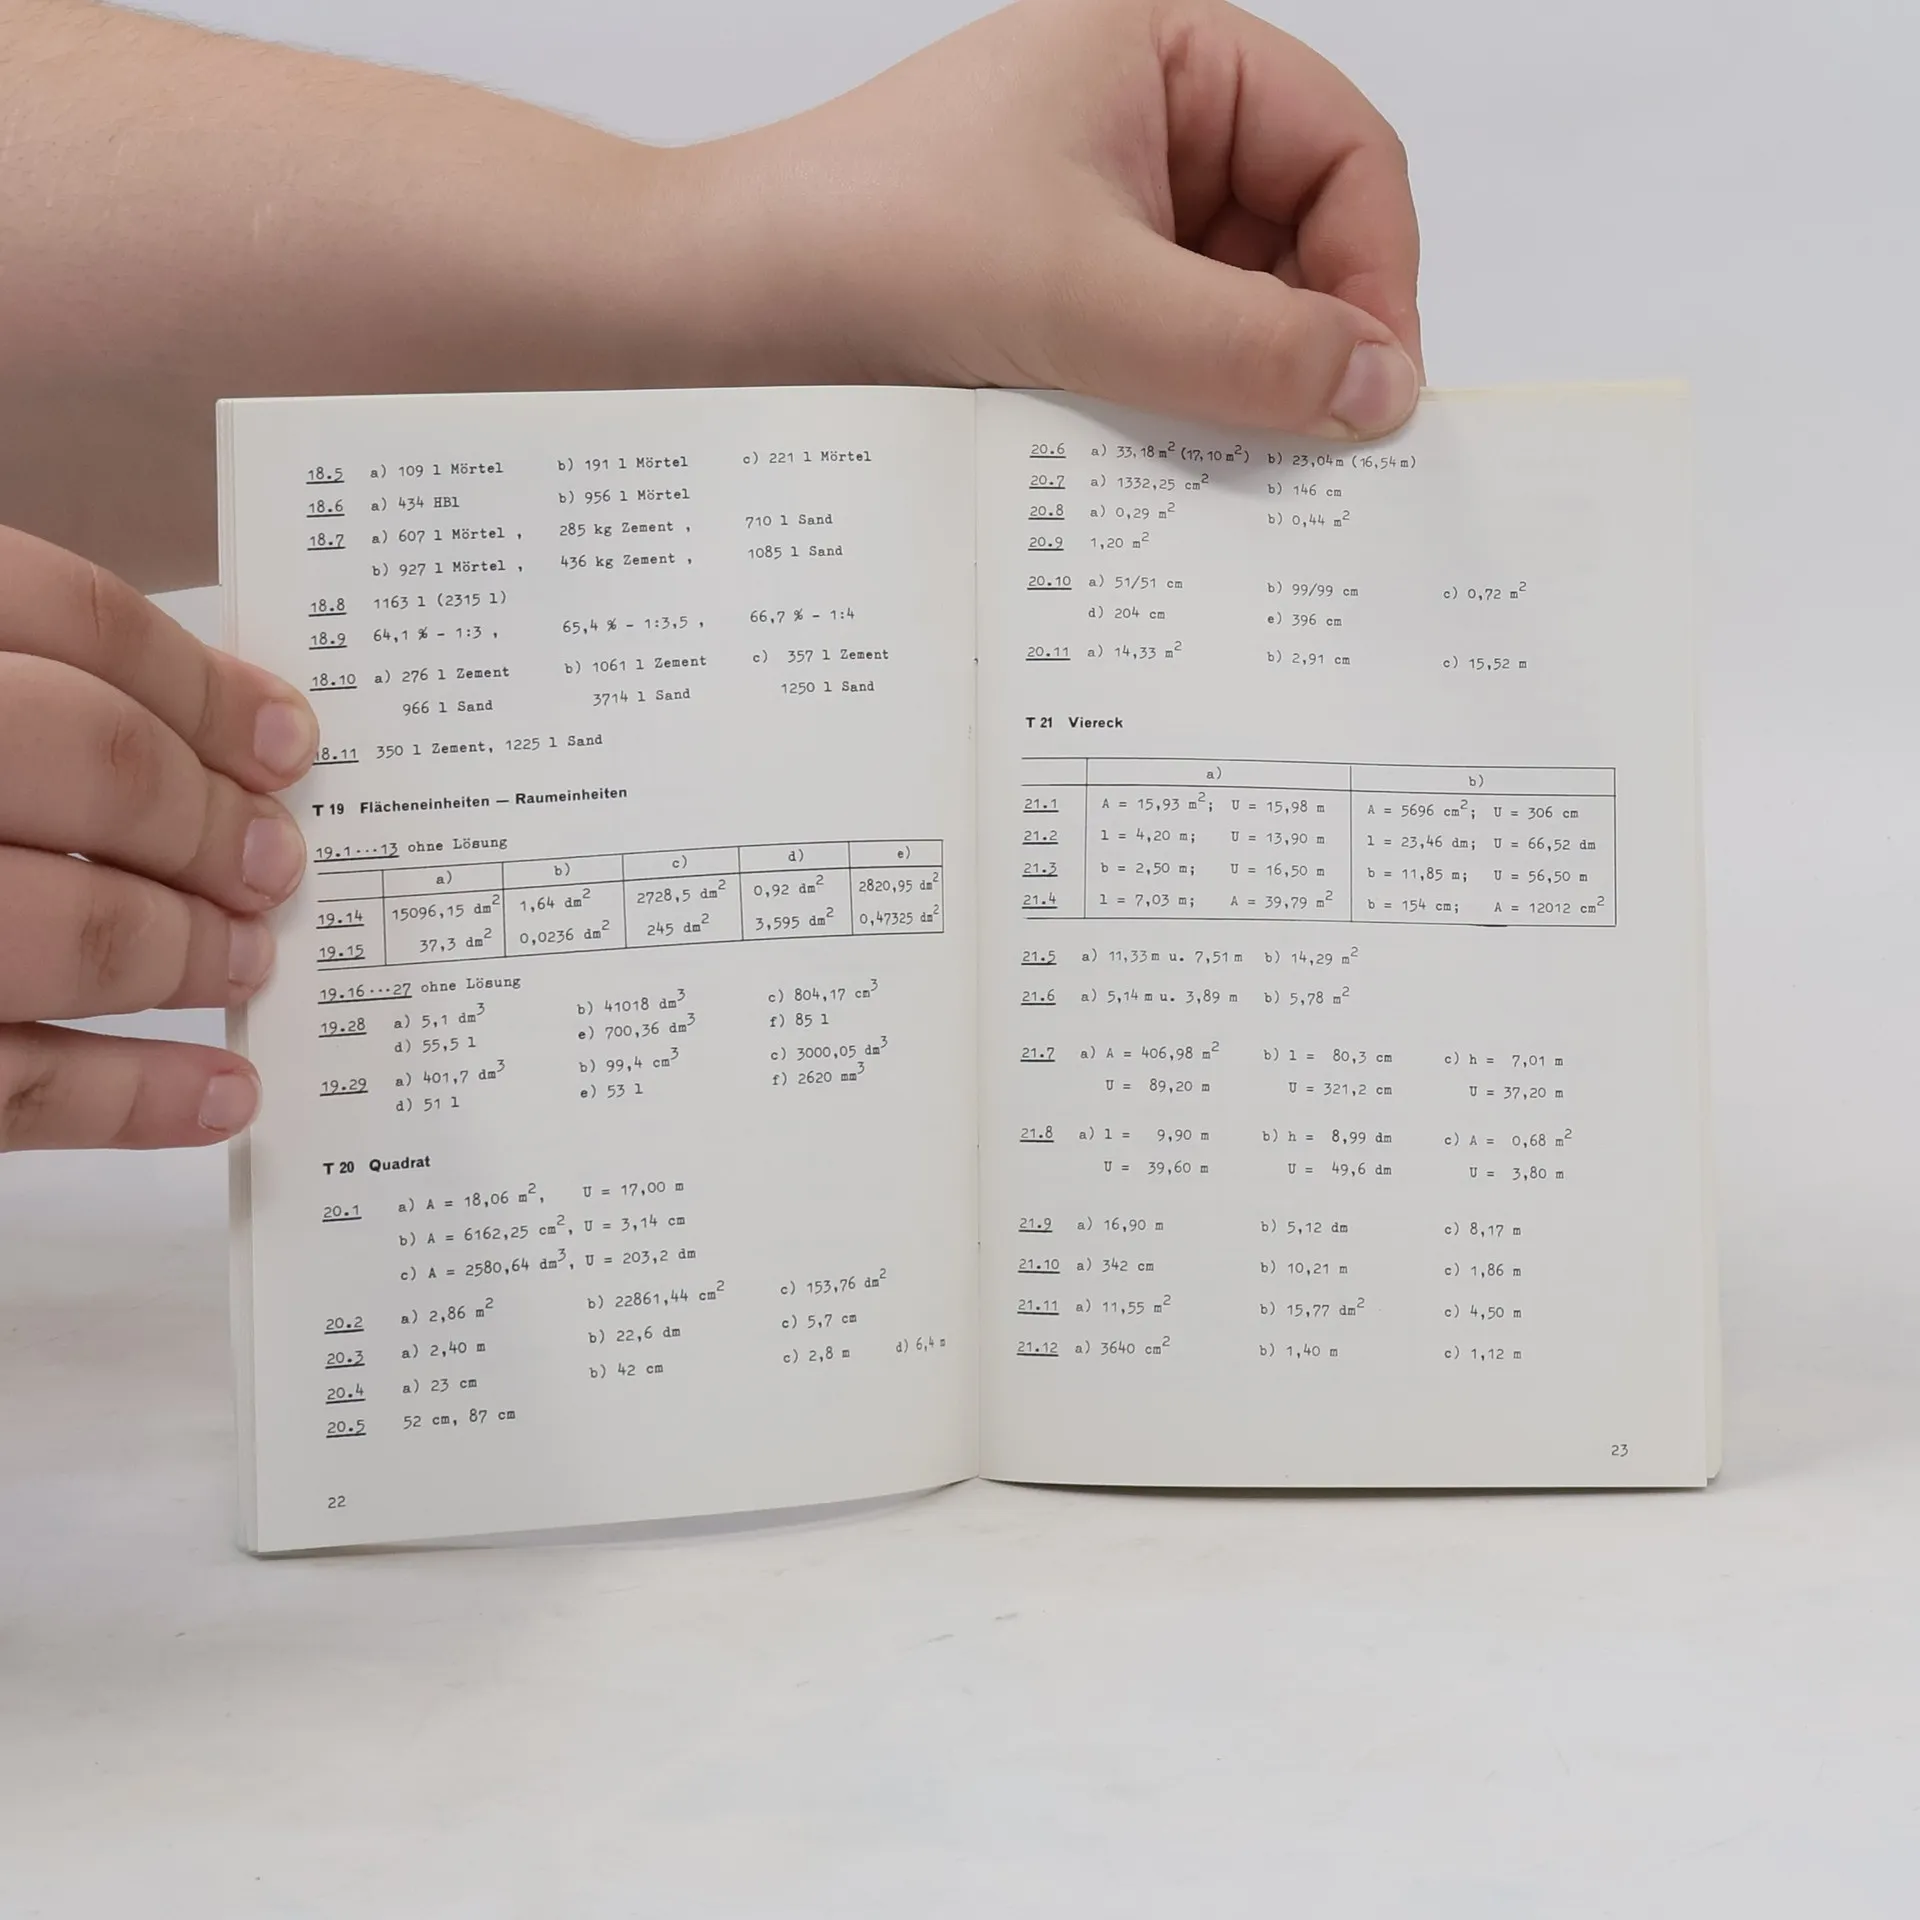 18.5 a) 109 l Mörtel b) 191 l Mörtel c) 221 l Mörtel
18.6 a) 434 HBl b) 956 l Mörtel
18.7 a) 607 l Mörtel , 285 kg Zement , 710 l Sand
b) 927 l Mörtel , 436 kg Zement , 1085 l Sand
18.8 1163 l (2315 l)
18.9 64,1 % - 1:3 , 65,4 % - 1:3,5 , 66,7 % - 1:4
18.10 a) 276 l Zement b) 1061 l Zement c) 357 l Zement
966 l Sand 3714 l Sand 1250 l Sand
18.11 350 l Zement, 1225 l Sand
T 19 Flächeneinheiten — Raumeinheiten
19.1...13 ohne Lösung
a) b) c) d) e)
19.14 15096,15 dm² 1,64 dm² 2728,5 dm² 0,92 dm² 2820,95 dm²
19.15 37,3 dm² 0,0236 dm² 245 dm² 3,595 dm² 0,47325 dm²
19.16...27 ohne Lösung
19.28 a) 5,1 dm³ b) 41018 dm³ c) 804,17 cm³
d) 55,5 l e) 700,36 dm³ f) 85 l
19.29 a) 401,7 dm³ b) 99,4 cm³ c) 3000,05 dm³
d) 51 l e) 53 l f) 2620 mm³
T 20 Quadrat
20.1 a) A = 18,06 m², U = 17,00 m
b) A = 6162,25 cm², U = 3,14 cm
c) A = 2580,64 dm³, U = 203,2 dm
20.2 a) 2,86 m² b) 22861,44 cm² c) 153,76 dm²
20.3 a) 2,40 m b) 22,6 dm c) 5,7 cm
20.4 a) 23 cm b) 42 cm c) 2,8 m d) 6,4 m
20.5 52 cm, 87 cm
22
20.6 a) 33,18 m² (17,10 m²) b) 23,04 m (16,54 m)
20.7 a) 1332,25 cm² b) 146 cm
20.8 a) 0,29 m² b) 0,44 m²
20.9 1,20 m²
20.10 a) 51/51 cm b) 99/99 cm c) 0,72 m²
d) 204 cm e) 396 cm
20.11 a) 14,33 m² b) 2,91 cm c) 15,52 m
T 21 Viereck
a) b)
21.1 A = 15,93 m²; U = 15,98 m A = 5696 cm²; U = 306 cm
21.2 l = 4,20 m; U = 13,90 m l = 23,46 dm; U = 66,52 dm
21.3 b = 2,50 m; U = 16,50 m b = 11,85 m; U = 56,50 m
21.4 l = 7,03 m; A = 39,79 m² b = 154 cm; A = 12012 cm²
21.5 a) 11,33 m u. 7,51 m b) 14,29 m²
21.6 a) 5,14 m u. 3,89 m b) 5,78 m²
21.7 a) A = 406,98 m² b) l = 80,3 cm c) h = 7,01 m
U = 89,20 m U = 321,2 cm U = 37,20 m
21.8 a) l = 9,90 m b) h = 8,99 dm c) A = 0,68 m²
U = 39,60 m U = 49,6 dm U = 3,80 m
21.9 a) 16,90 m b) 5,12 dm c) 8,17 m
21.10 a) 342 cm b) 10,21 m c) 1,86 m
21.11 a) 11,55 m² b) 15,77 dm² c) 4,50 m
21.12 a) 3640 cm² b) 1,40 m c) 1,12 m
23